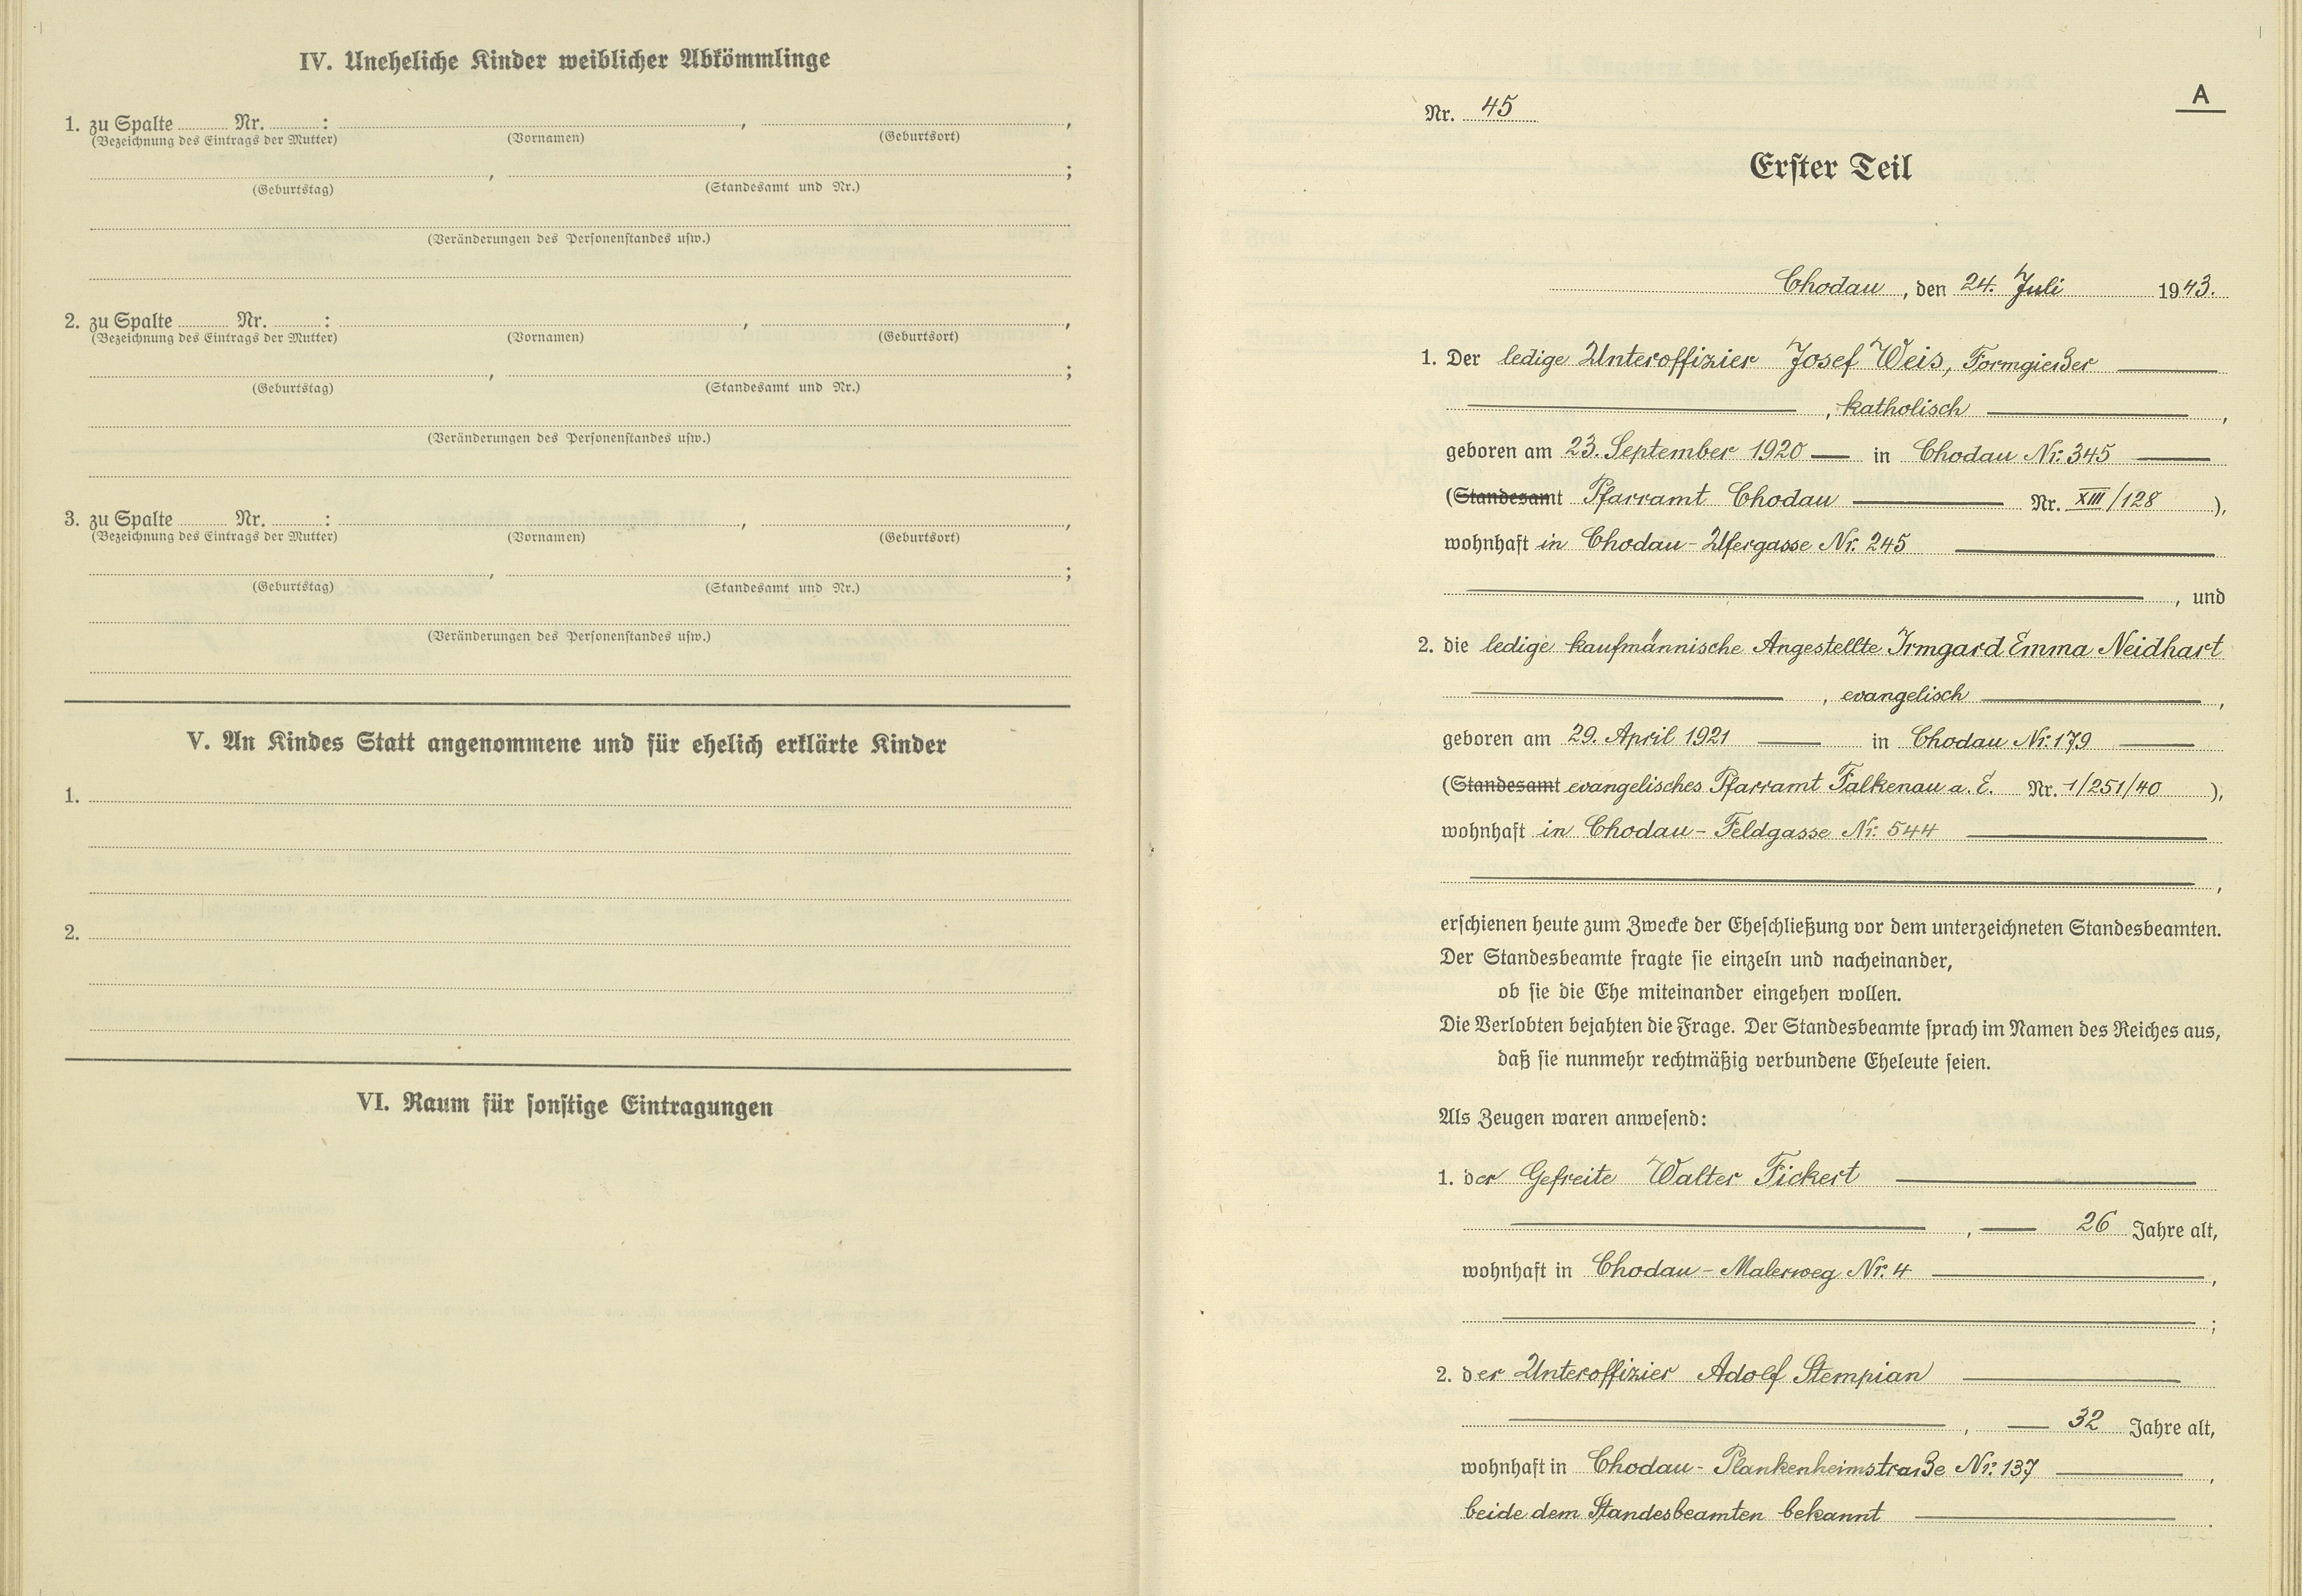 IV. Uneheliche Kinder weiblicher Abkömmlinge
1. zu Spalte Nr. : , ,
(Bezeichnung des Eintrags der Mutter) (Vornamen) (Geburtsort)
, ;
(Geburtstag) (Standesamt und Nr.)
(Veränderungen des Personenstandes usw.)
2. zu Spalte Nr. : , ,
(Bezeichnung des Eintrags der Mutter) (Vornamen) (Geburtsort)
, ;
(Geburtstag) (Standesamt und Nr.)
(Veränderungen des Personenstandes usw.)
3. zu Spalte Nr. : , ,
(Bezeichnung des Eintrags der Mutter) (Vornamen) (Geburtsort)
, ;
(Geburtstag) (Standesamt und Nr.)
(Veränderungen des Personenstandes usw.)
V. An Kindes Statt angenommene und für ehelich erklärte Kinder
1.
2.
VI. Raum für sonstige Eintragungen
A
Nr. 45
Erster Teil
Chodau, den 24. Juli 1943.
1. Der ledige Unteroffizier Josef Weis, Formgießer
, katholisch ,
geboren am 23. September 1920 — in Chodau Nr. 345
(Standesamt Pfarramt Chodau Nr. XIII/128 ),
wohnhaft in Chodau - Ufergasse Nr. 245
, und
2. die ledige kaufmännische Angestellte Irmgard Emma Neidhart
, evangelisch ,
geboren am 29. April 1921 — in Chodau Nr. 179
(Standesamt evangelisches Pfarramt Falkenau a. E. Nr. 1/251/40 ),
wohnhaft in Chodau - Feldgasse Nr. 544
,
erschienen heute zum Zwecke der Eheschließung vor dem unterzeichneten Standesbeamten.
Der Standesbeamte fragte sie einzeln und nacheinander,
ob sie die Ehe miteinander eingehen wollen.
Die Verlobten bejahten die Frage. Der Standesbeamte sprach im Namen des Reiches aus,
daß sie nunmehr rechtmäßig verbundene Eheleute seien.
Als Zeugen waren anwesend:
1. der Gefreite Walter Fickert
, — 26 Jahre alt,
wohnhaft in Chodau - Malerweg Nr. 4 ,
;
2. der Unteroffizier Adolf Stempian
, — 32 Jahre alt,
wohnhaft in Chodau - Plankenheimstraße Nr. 137 ,
beide dem Standesbeamten bekannt .